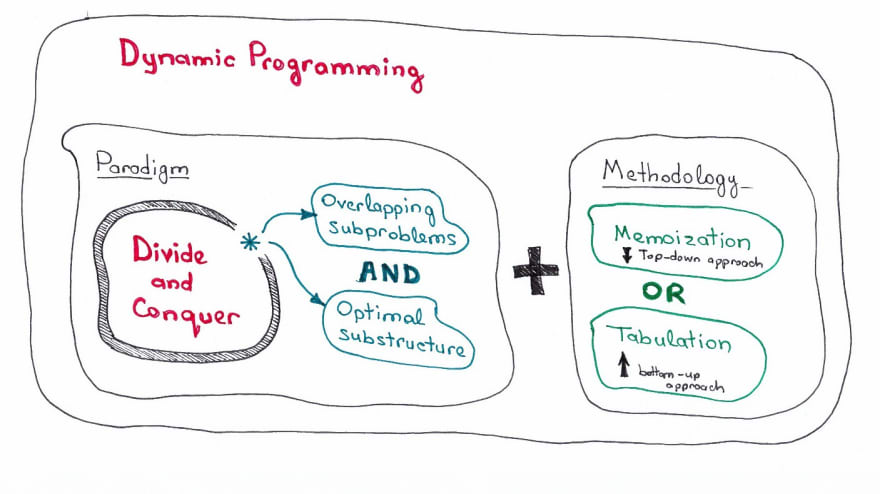 Dynamic Programming
Paradigm
Divide
and
Conquer
*
Overlapping
subproblems
AND
Optimal
substructure
+
Methodology
Memoization
Top-down approach
OR
Tabulation
bottom-up
approach